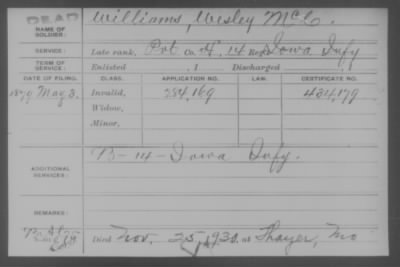 DEAD
NAME OF SOLDIER: Williams, Wesley McC.
SERVICE: Late rank, Pvt Co. H, 14 Reg. Iowa Infy
TERM OF SERVICE: Enlisted , 1 Discharged
DATE OF FILING. CLASS. APPLICATION NO. LAW. CERTIFICATE NO.
1879 May 3. Invalid, 284,169 434,179
Widow,
Minor,
ADDITIONAL SERVICES: B-14-Iowa Infy.
REMARKS:
Died Nov. 25, 1930. at Thayer, Mo